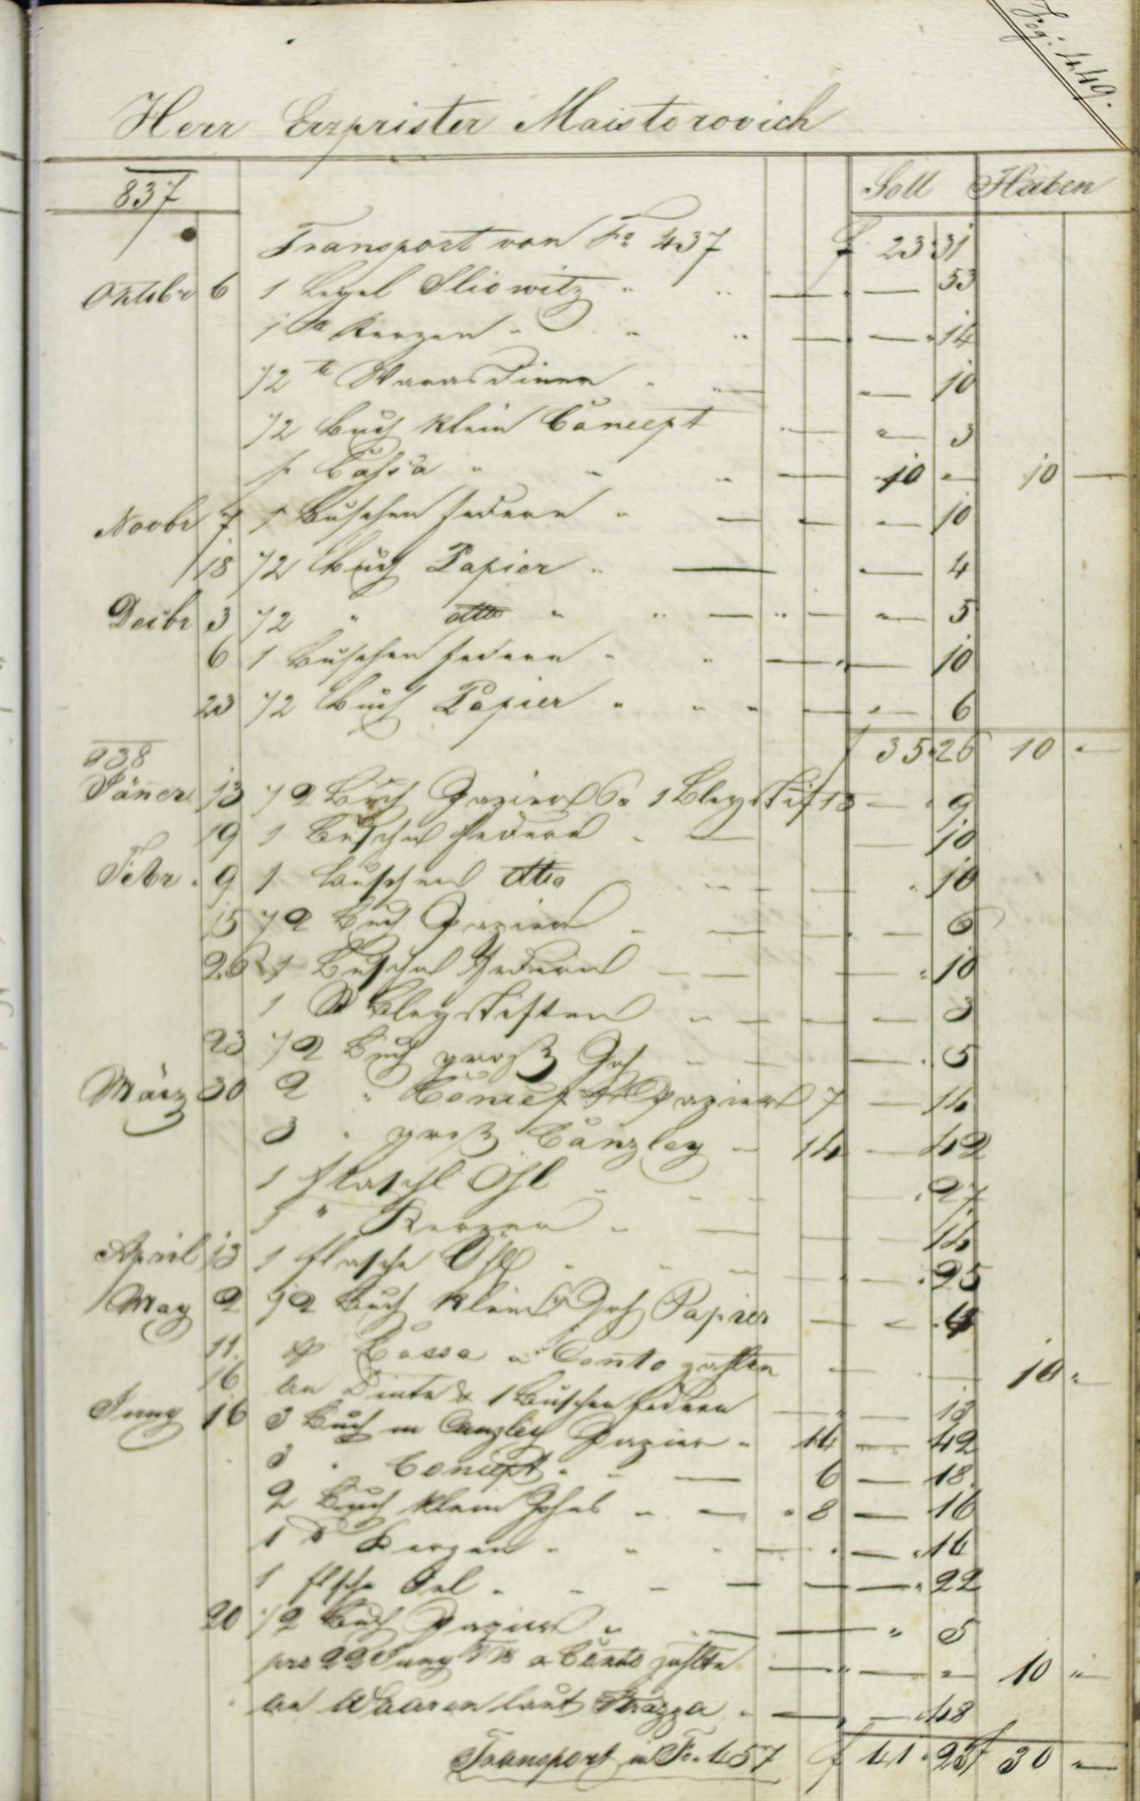 Fog: 449.
Herr Erzprister Maistorovich
837 Soll Haben
Transport von Fo 437 f 23 31
Oktobr 6 1 Legel Sliowitz " " — — 53
1 ℔ Kerzen " " " — — " 14
1/2 ℔ Warasdiner " — — 10
1/2 Buch klein Concept — " — 3
p Cassa " " " — 10 " 10 —
Novbr 7 1 Buschen Federn " — — " — 10
18 1/2 Buch Papier " — — 4
Decbr 3 1/2 " detto " " — " — " — 5
6 1 Buschen Federn " " — " — 10
23 1/2 Buch Papier " " " — " — 6
f 35 26 10 "
838
Jäner 13 1/2 Buch Papier 6 1 Bleystift 3 — " 9
19 1 Buschen Federn " — — 10
Febr. 9 1 Buschen detto " — — " 10
15 1/2 Buch Papier " — — — 6
26 1 Buschen Federn — — — " 10
1 Bleystiften " — — — 3
23 1/2 Buch groß — " 5
März 30 2 " Concept Papier 7 — 14
3 " groß Canzley " 14 — 42
1 Flaschl Öhl " — — " 27
1 " Kerzen " — — 14
April 13 1 Flasche Öhl " — — " 25
May 2 1/2 Buch klein Papier — " — " 4
11. p Cassa a Conto zahlte — — — 10 "
16 an Dinte & 1 Buschen Federn — " — 13
Juny 16 3 Buch Canzley Papier " 14 — 42
3 " Concept " — 6 — 18
2 Buch klein " — " 8 — 16
1 ℔ Kerzen " " " — " — " 14
1 Flsche Oel " " — — — — " 22
20 1/2 Buch Papier " — — — " 5
pro 22 Juny a Conto zahlte — " — " 10 "
an Waaren laut Strazza " — " — " 48
Transport in Fo. 457 f 41 " 23 f 30 "